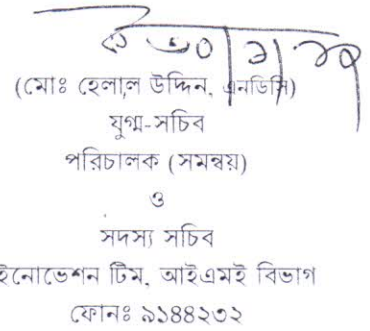 ৩০|১|১৭
(মোঃ হেলাল উদ্দিন, এনডিসি)
যুগ্ম-সচিব
পরিচালক (সমন্বয়)
ও
সদস্য সচিব
ইনোভেশন টিম, আইএমই বিভাগ
ফোনঃ ৯১৪৪২৩২